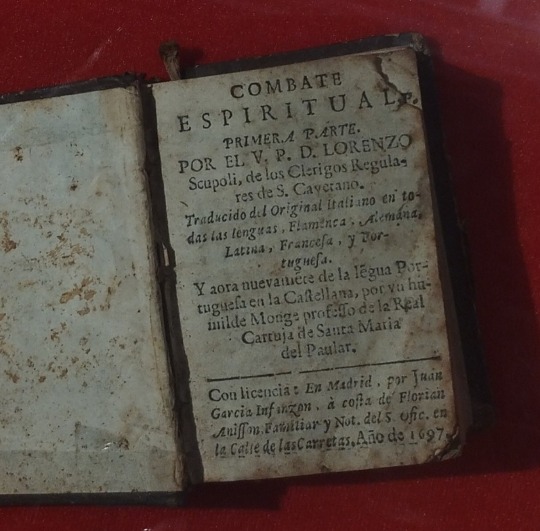 COMBATE
ESPIRITUAL.
PRIMERA PARTE.
POR EL V. P. D. LORENZO
Scupoli, de los Clerigos Regula-
res de S. Cayetano.
Traducido del Original Italiano en to-
das las lenguas, Flamenca, Alemana,
Latina, Francesa, y Por-
tuguesa.
Y aora nuevamẽte de la lẽgua Por-
tuguesa en la Castellana, por vn hu-
milde Monge professo de la Real
Cartuja de Santa Maria
del Paular.
Con licencia: En Madrid, por Juan
Garcia Infanzon, à costa de Florian
Anisson, Familiar y Not. del S. Ofic. en
la Calle de las Carretas. Año de 1697.